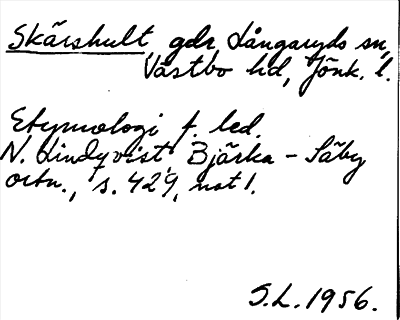 Skärshult, gdr, Långaryds sn,
Västbo hd, Jönk. l.
Etymologi f. led.
N. Lindqvist, Bjärka - Säby
ortn., s. 429, not 1.
S.L. 1956.